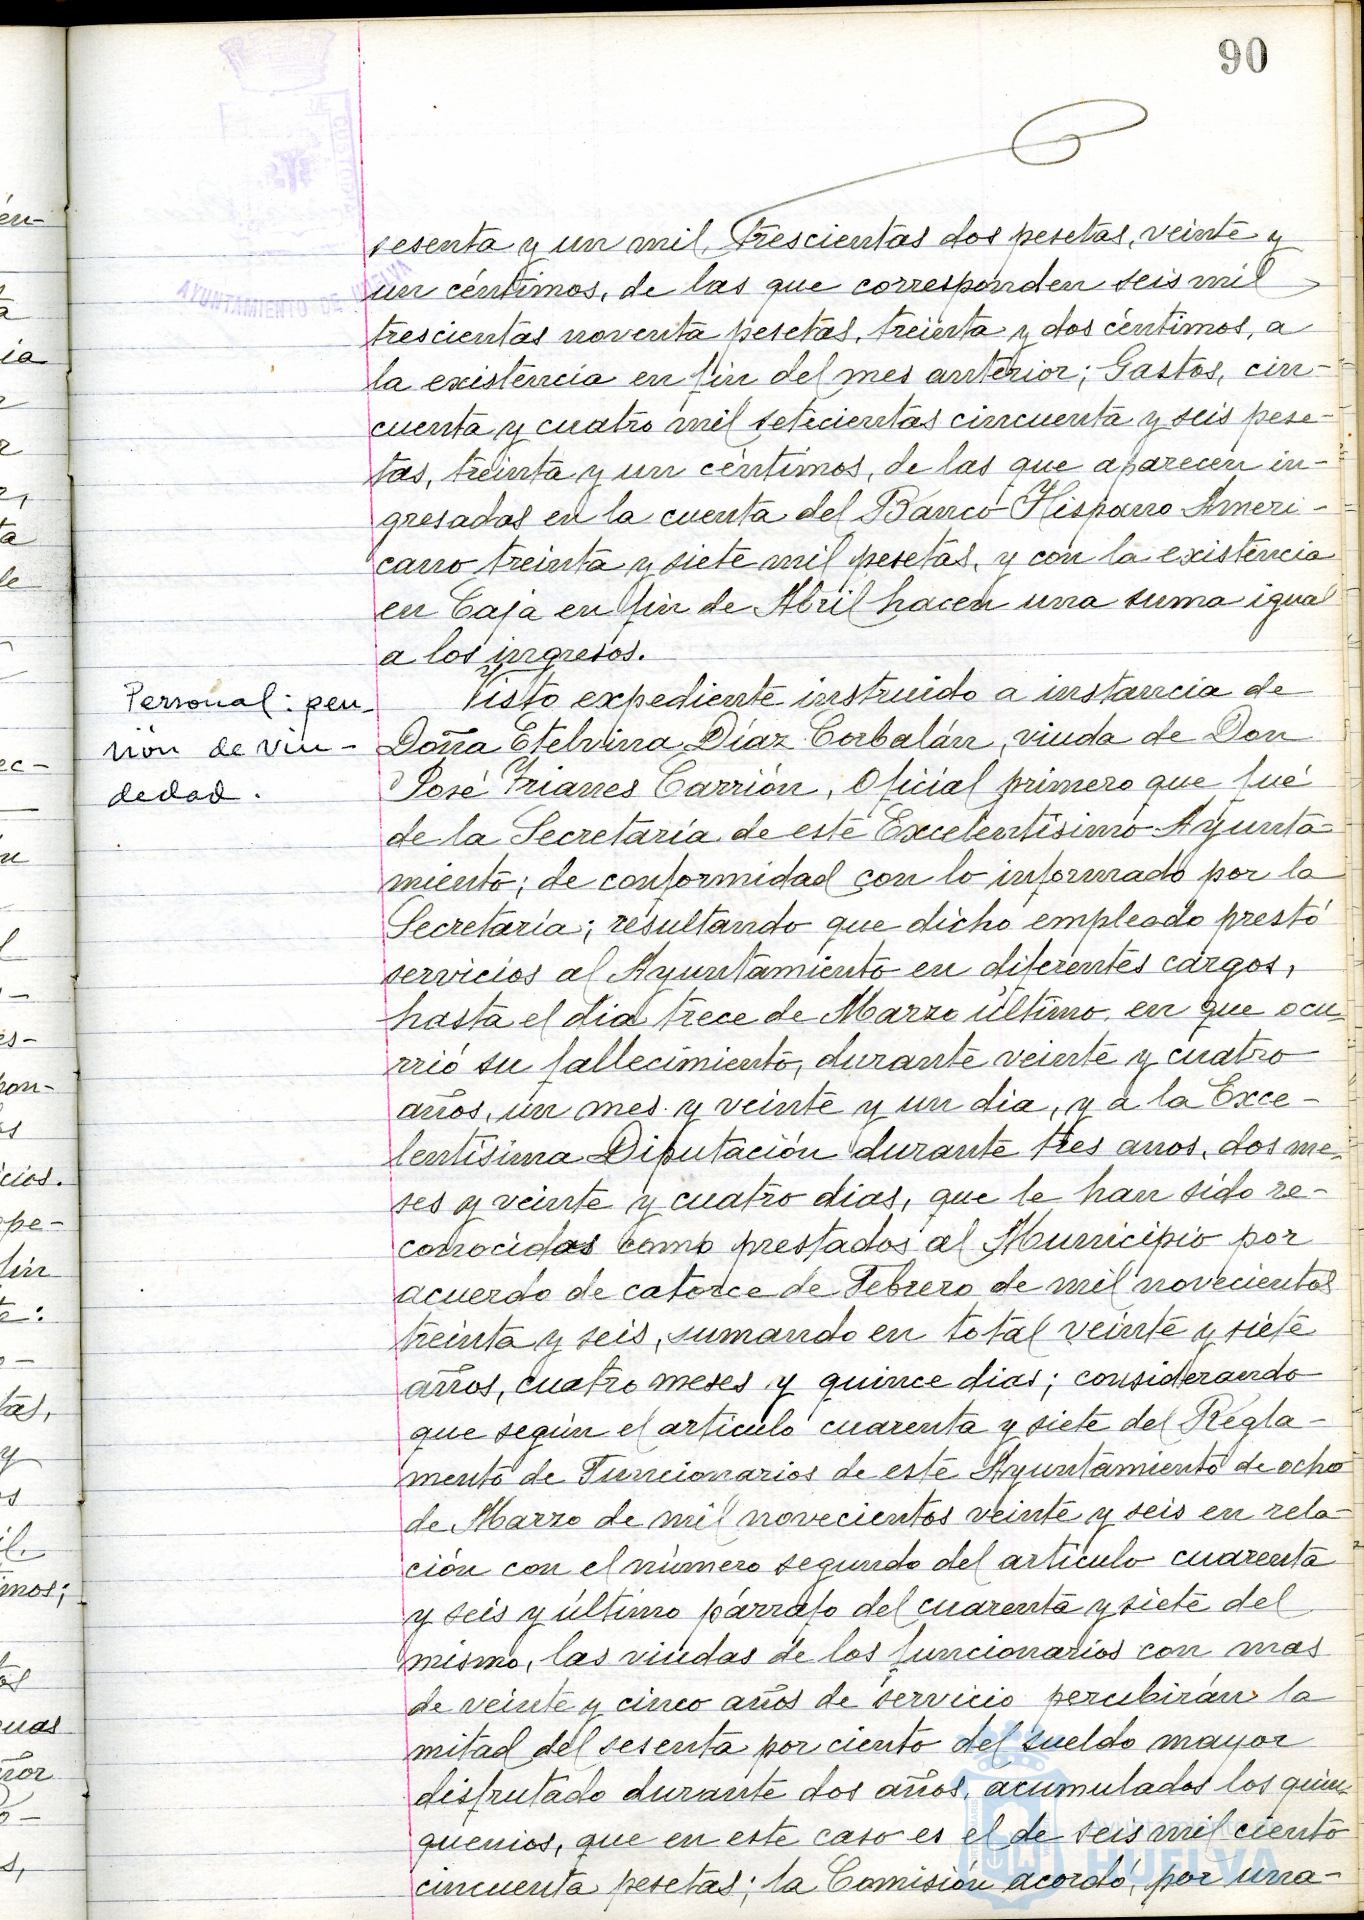 90
sesenta y un mil, trescientas dos pesetas, veinte y
un céntimos, de las que corresponden seis mil
trescientas noventa pesetas, treinta y dos céntimos, a
la existencia en fin del mes anterior; Gastos, cin-
cuenta y cuatro mil setecientas cincuenta y seis pese-
tas, treinta y un céntimos, de las que aparecen in-
gresadas en la cuenta del Banco Hispano Ameri-
cano treinta y siete mil pesetas, y con la existencia
en Caja en fin de Abril hacen una suma igual
a los ingresos.
Personal: pen-
sión de viu-
dedad.
Visto expediente instruido a instancia de
Doña Etelvina Díaz Corbalán, viuda de Don
José Frianes Carrión, Oficial primero que fué
de la Secretaría de este Excelentísimo Ayunta-
miento; de conformidad con lo informado por la
Secretaría; resultando que dicho empleado prestó
servicios al Ayuntamiento en diferentes cargos,
hasta el dia trece de Marzo último, en que ocu-
rrió su fallecimiento, durante veinte y cuatro
años, un mes y veinte y un dia, y a la Exce-
lentísima Diputación durante tres anos, dos me-
ses y veinte y cuatro dias, que le han sido re-
conocidas como prestados al Municipio por
acuerdo de catorce de Febrero de mil novecientos
treinta y seis, sumando en total veinte y siete
años, cuatro meses y quince dias; considerando
que según el artículo cuarenta y siete del Regla-
mento de Funcionarios de este Ayuntamiento de ocho
de Marzo de mil novecientos veinte y seis en rela-
ción con el número segundo del artículo cuarenta
y seis y último párrafo del cuarenta y siete del
mismo, las viudas de los funcionarios con mas
de veinte y cinco años de servicio percibirán la
mitad del sesenta por ciento del sueldo mayor
disfrutado durante dos años, acumulados los quin-
quenios, que en este caso es el de seis mil ciento
cincuenta pesetas; la Comisión acordó, por una-
AYUNTAMIENTO DE HUELVA
HUELVA